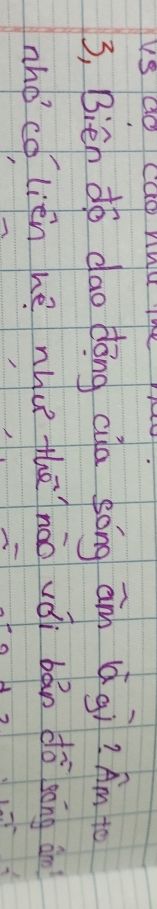 và độ cao như thế nào.
3, Biên độ dao động của sóng âm là gì? Âm to
nhỏ có liên hệ như thế nào với bản đồ sóng âm?